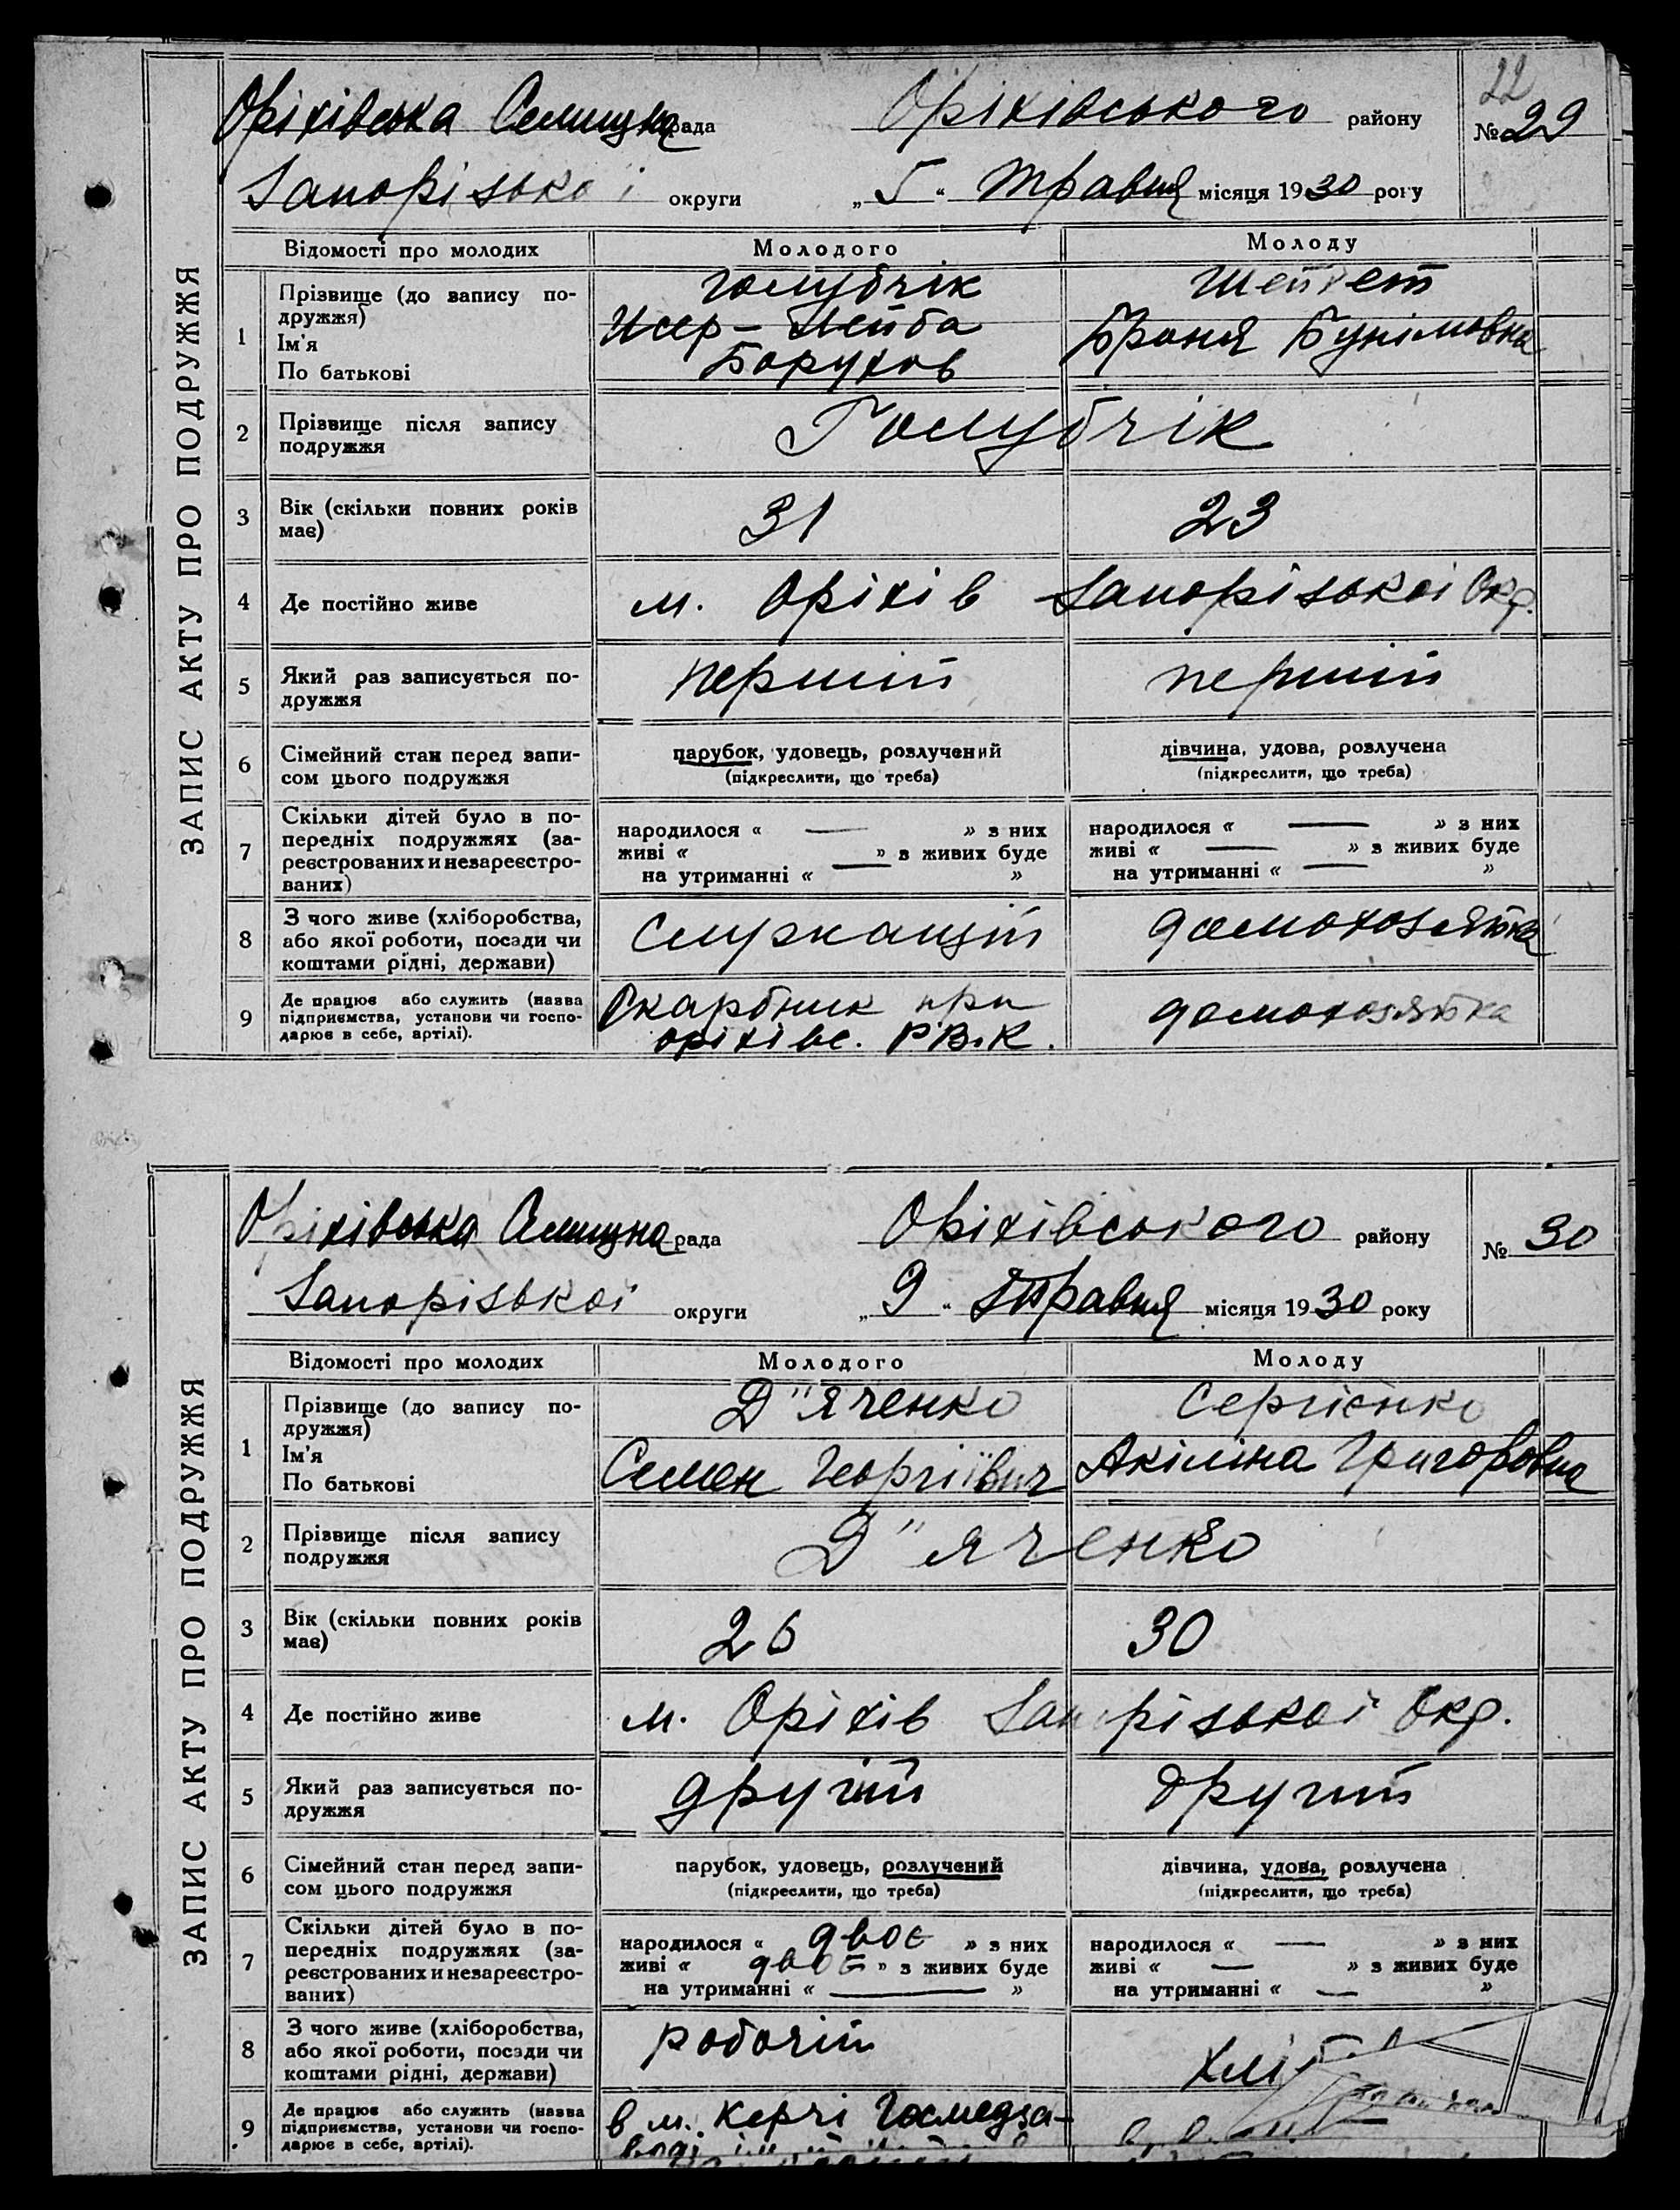 ЗАПИС АКТУ ПРО ПОДРУЖЖЯ
22
Оріхівська Селищна рада Оріхівського району №29
Запорізької округи „5“ Травня місяця 1930 року
Відомості про молодих Молодого Молоду
1 Прізвище (до запису по-
дружжя)
Ім'я
По батькові
Голубчік
Исер-Лейба
Борухов
Броня Бунімовна
2 Прізвище після запису
подружжя
Голубчік
3 Вік (скільки повних років
має)
31 23
4 Де постійно живе м. Оріхів Запорізької Окр.
5 Який раз записується по-
дружжя
перший перший
6 Сімейний стан перед запи-
сом цього подружжя
парубок, удовець, розлучений
(підкреслити, що треба)
дівчина, удова, розлучена
(підкреслити, що треба)
7 Скільки дітей було в по-
передніх подружжях (за-
реєстрованих и незареєстро-
ваних)
народилося « — » з них
живі « — » з живих буде
на утриманні « »
народилося « — » з них
живі « — » з живих буде
на утриманні « — »
8 З чого живе (хліборобства,
або якої роботи, посади чи
коштами рідні, держави)
Служащий домохозяйка
9 Де працює або служить (назва
підприємства, установи чи госпо-
дарює в себе, артілі).
Скарбник при
оріхівс. Р.В.К.
домохозяйка
ЗАПИС АКТУ ПРО ПОДРУЖЖЯ
Оріхівська Селищна рада Оріхівського району № 30
Запорізької округи „9“ Травня місяця 1930 року
Відомості про молодих Молодого Молоду
1 Прізвище (до запису по-
дружжя)
Ім'я
По батькові
Д"яченко
Семен Георгіївич
Сергієнко
Акіліна Григоровна
2 Прізвище після запису
подружжя
Д"яченко
3 Вік (скільки повних років
має)
26 30
4 Де постійно живе м. Оріхів Запорізької Окр.
5 Який раз записується по-
дружжя
другий другий
6 Сімейний стан перед запи-
сом цього подружжя
парубок, удовець, розлучений
(підкреслити, що треба)
дівчина, удова, розлучена
(підкреслити, що треба)
7 Скільки дітей було в по-
передніх подружжях (за-
реєстрованих и незареєстро-
ваних)
народилося « двоє » з них
живі « двоє » з живих буде
на утриманні « — »
народилося « — » з них
живі « — » з живих буде
на утриманні « — »
8 З чого живе (хліборобства,
або якої роботи, посади чи
коштами рідні, держави)
робочій
9 Де працює або служить (назва
підприємства, установи чи госпо-
дарює в себе, артілі).
в м. Керчі